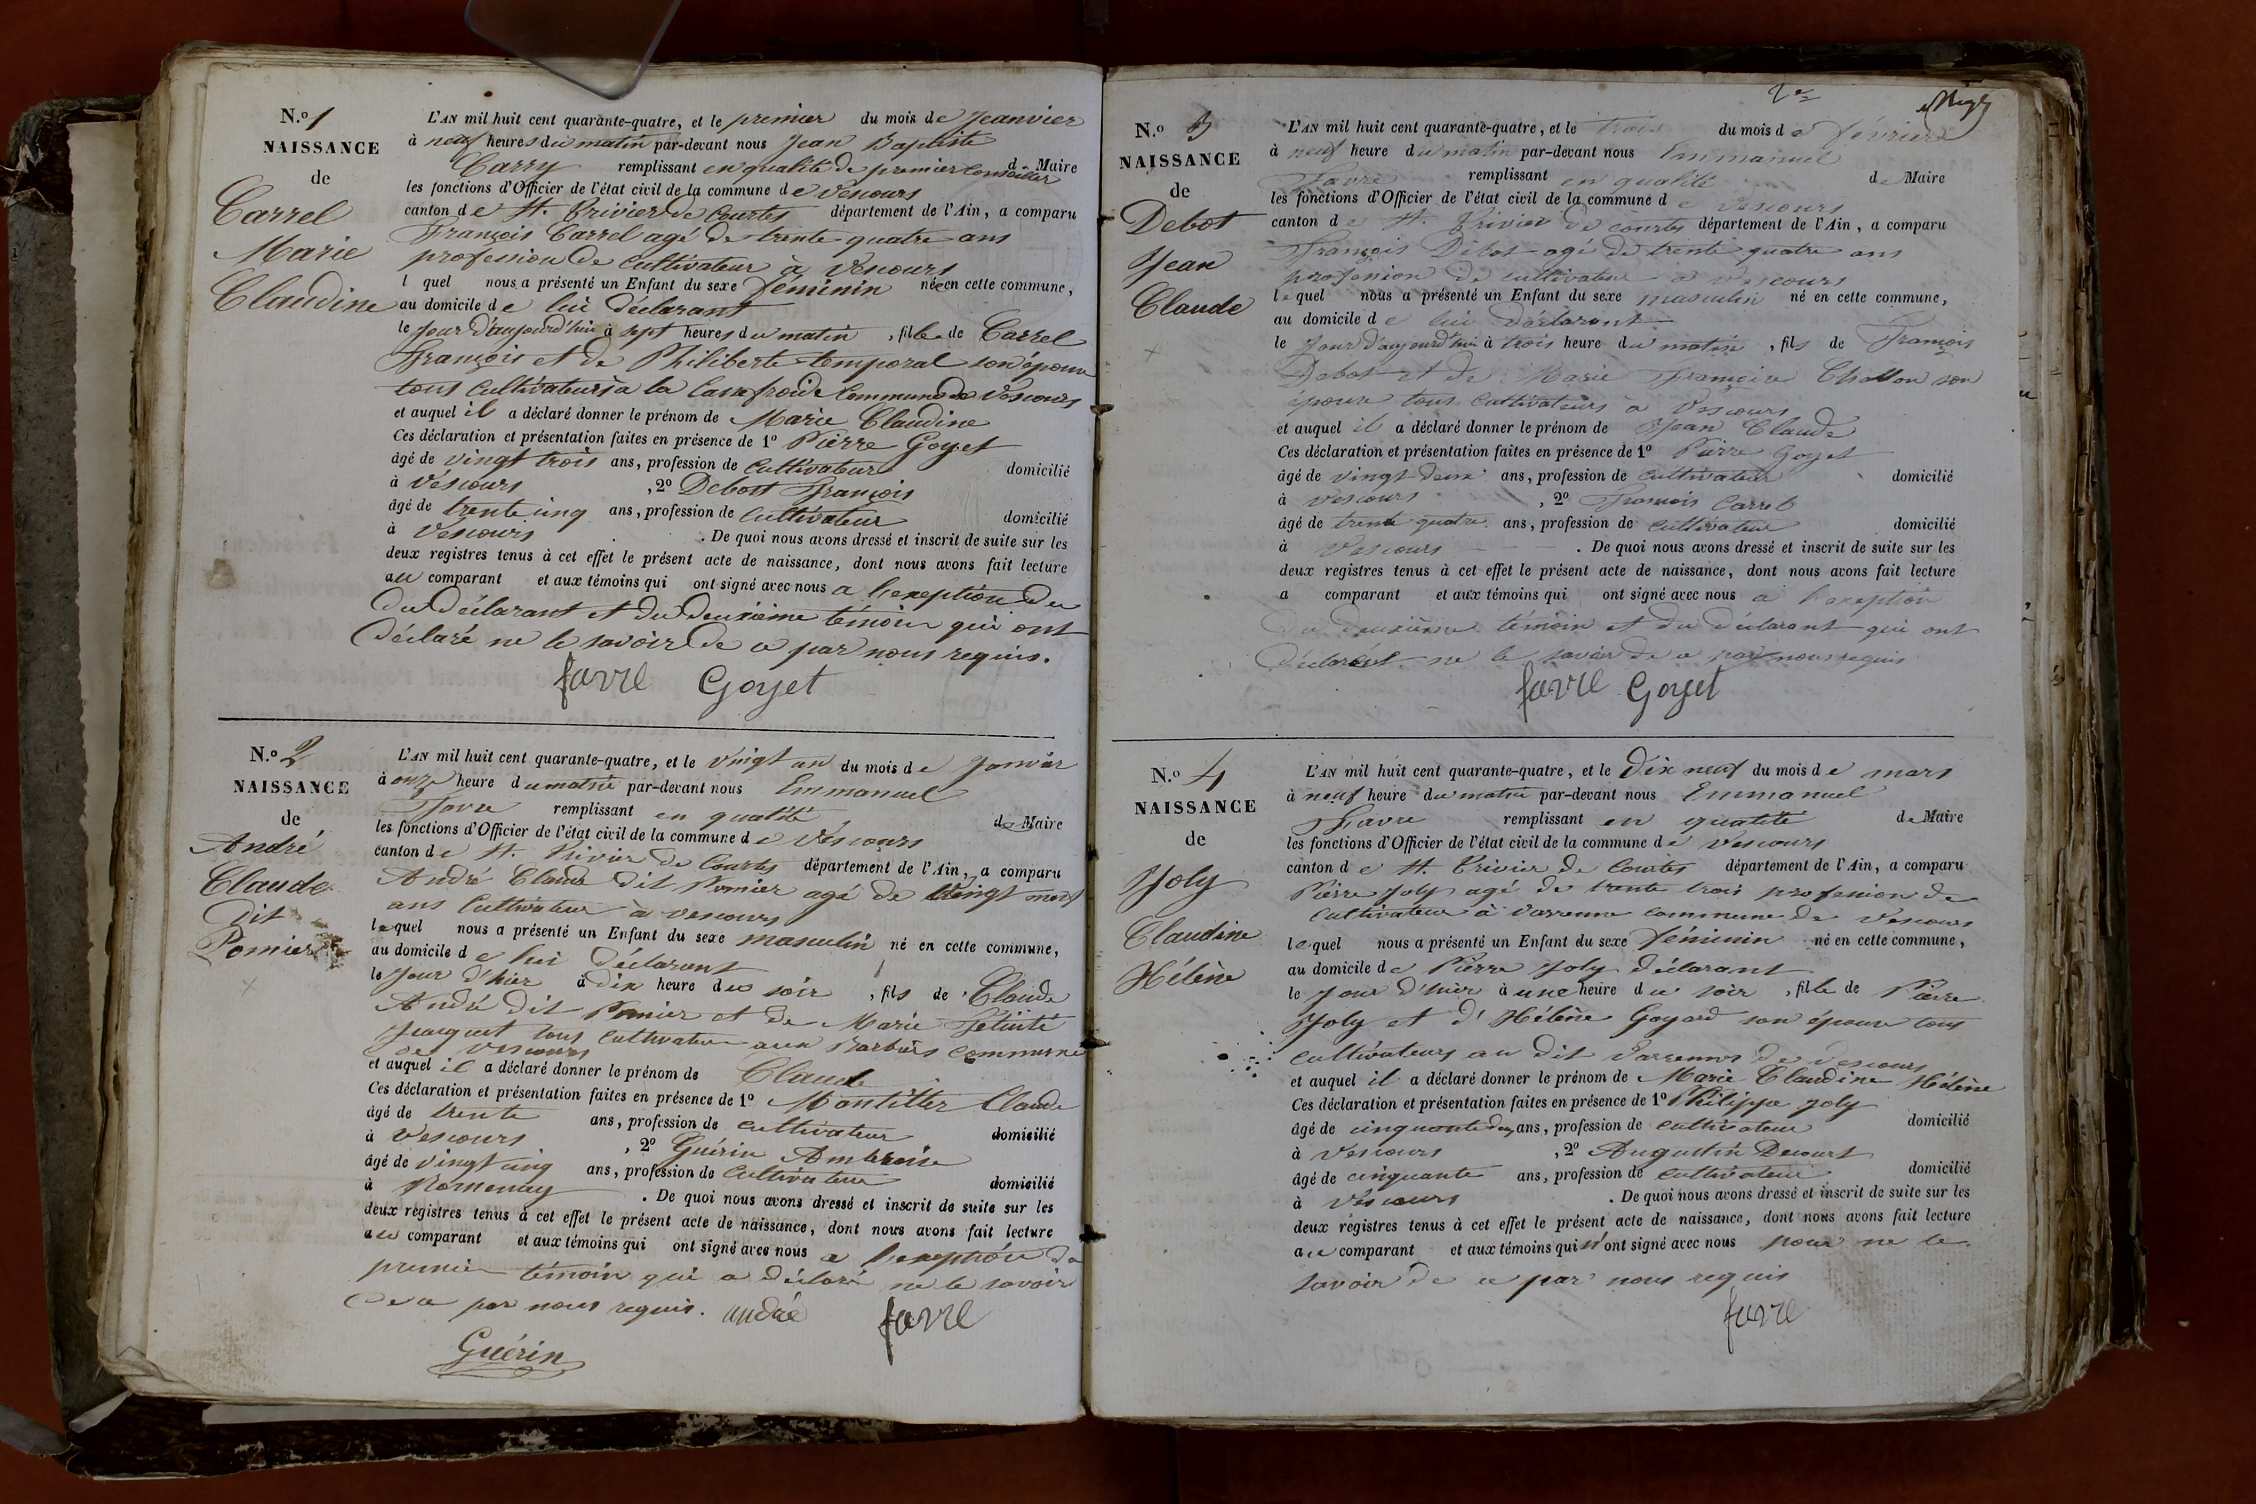 N.o 1
NAISSANCE
de
Carrel
Marie
Claudine
L'AN mil huit cent quarante-quatre, et le premier du mois de Jeanvier
à neuf heures du matin par-devant nous Jean Baptiste
Carry remplissant en qualité de premier Conseiller de Maire
les fonctions d'Officier de l'état civil de la commune de Vescours
canton de St. Trivier de Courtes département de l'Ain, a comparu
François Carrel agé de trente quatre ans
profession de cultivateur à Vescours
l quel nous a présenté un Enfant du sexe féminin née en cette commune,
au domicile de lui déclarant
le jour d'aujourd'hui à sept heures du matin, fille de Carrel
François et de Philiberte temporal son épouse
tous cultivateurs à la Commune de Vescours
et auquel il a déclaré donner le prénom de Marie Claudine
Ces déclaration et présentation faites en présence de 1o Pierre Goyet
âgé de vingt trois ans, profession de cultivateur domicilié
à Vescours, 2o Debost François
âgé de trente cinq ans, profession de cultivateur domicilié
à Vescours. De quoi nous avons dressé et inscrit de suite sur les
deux registres tenus à cet effet le présent acte de naissance, dont nous avons fait lecture
au comparant et aux témoins qui ont signé avec nous a l'exception du
du déclarant et du deuxième témoin qui ont
déclaré ne le savoir de ce par nous requis.
favre Goyet
N.o 2
NAISSANCE
de
André
Claude
dit
Pomier
L'AN mil huit cent quarante-quatre, et le vingt un du mois de Janvier
à onze heure du matin par-devant nous Emmanuel
Favre remplissant en qualité de Maire
les fonctions d'Officier de l'état civil de la commune de Vescours
canton de St. Trivier de Courtes département de l'Ain, a comparu
André Claude dit Pomier agé de vingt neuf
ans Cultivateur à Vescours
lequel nous a présenté un Enfant du sexe masculin né en cette commune,
au domicile de lui déclarant
le jour d'hier à dix heure du soir, fils de Claude
André dit Pomier et de Marie Félicité
Jacquet tous cultivateur aux commune
de Vescours
et auquel il a déclaré donner le prénom de Claude
Ces déclaration et présentation faites en présence de 1o Claude
âgé de trente ans, profession de cultivateur domicilié
à Vescours, 2o Guérin Ambroise
âgé de vingt cinq ans, profession de Cultivateur domicilié
à Romenay. De quoi nous avons dressé et inscrit de suite sur les
deux registres tenus à cet effet le présent acte de naissance, dont nous avons fait lecture
au comparant et aux témoins qui ont signé avec nous a l'exception du
premier témoin qui a déclaré ne le savoir
de ce par nous requis. andré favre
Guérin
N.o 3
NAISSANCE
de
Debot
Jean
Claude
L'AN mil huit cent quarante-quatre, et le trois du mois de février
à neuf heure du matin par-devant nous Emmanuel
Favre remplissant en qualité de Maire
les fonctions d'Officier de l'état civil de la commune de Vescours
canton de St. Trivier de Courtes département de l'Ain, a comparu
François Debot agé de trente quatre ans
profession de cultivateur à Vescours
lequel nous a présenté un Enfant du sexe masculin né en cette commune,
au domicile de lui déclarant
le jour d'aujourd'hui à trois heure du matin, fils de François
Debot et de Marie Françoise son
épouse tous cultivateurs à Vescours
et auquel il a déclaré donner le prénom de Jean Claude
Ces déclaration et présentation faites en présence de 1o Pierre Goyet
âgé de vingt deux ans, profession de cultivateur domicilié
à Vescours, 2o François Carrel
âgé de trente quatre ans, profession de cultivateur domicilié
à Vescours. De quoi nous avons dressé et inscrit de suite sur les
deux registres tenus à cet effet le présent acte de naissance, dont nous avons fait lecture
a comparant et aux témoins qui ont signé avec nous a l'exception
du deuxième témoin et du déclarant qui ont
ne le savoir de ce par nous requis
favre Goyet
N.o 4
NAISSANCE
de
Joly
Claudine
Hélène
L'AN mil huit cent quarante-quatre, et le dix neuf du mois de mars
à neuf heure du matin par-devant nous Emmanuel
Favre remplissant en qualité de Maire
les fonctions d'Officier de l'état civil de la commune de Vescours
canton de St. Trivier de Courtes département de l'Ain, a comparu
Pierre Joly agé de trente trois profession de
cultivateur à Varenne commune de Vescours
lequel nous a présenté un Enfant du sexe féminin né en cette commune,
au domicile de Pierre Joly déclarant
le jour d'hier à une heure du soir, fille de Pierre
Joly et d'Hélène Goyard son épouse tous
cultivateurs au dit de Vescours
et auquel il a déclaré donner le prénom de Marie Claudine Hélène
Ces déclaration et présentation faites en présence de 1o Philippe Joly
âgé de cinquante deux ans, profession de cultivateur domicilié
à Vescours, 2o Augustin Decourt
âgé de cinquante ans, profession de cultivateur domicilié
à Vescours. De quoi nous avons dressé et inscrit de suite sur les
deux registres tenus à cet effet le présent acte de naissance, dont nous avons fait lecture
au comparant et aux témoins qui n'ont signé avec nous pour ne le
savoir de ce par nous requis
favre